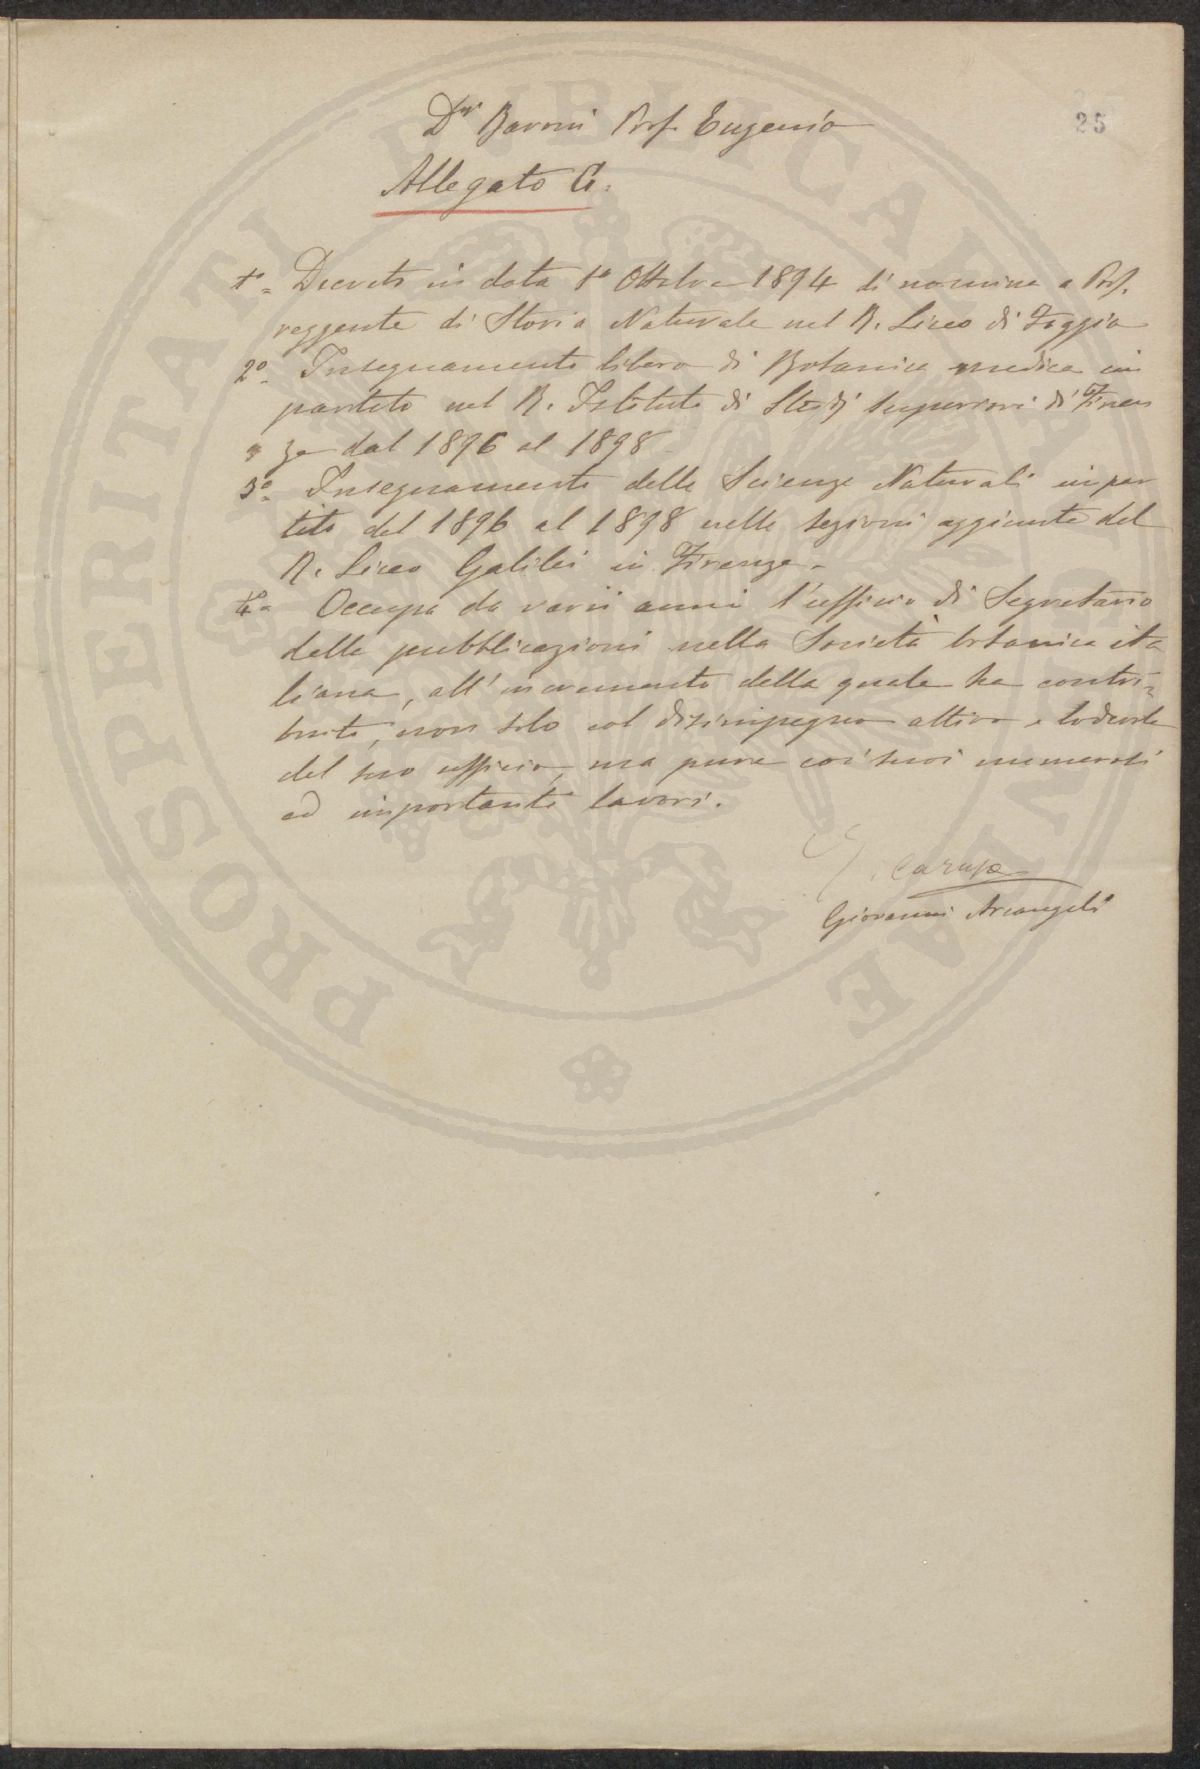 25
Dr Baroni Prof. Eugenio
Allegato G.
1º Decreto in data 1º Ottobre 1894 di nomina a Prof.
reggente di Storia Naturale nel R. Liceo di Foggia
2º Insegnamento libero di Botanica medica im
partito nel R. Istituto di Studj Superiori di Firen
ze dal 1896 al 1898
3º Insegnamento delle Scienze Naturali impar
tito dal 1896 al 1898 nelle sezioni aggiunte del
R. Liceo Galilei in Firenze.
4º Occupa da varii anni l'ufficio di Segretario
delle pubblicazioni nella Società botanica ita
liana, all'incremento della quale ha contri-
buito, non solo col disimpegno attivo e lodevole
del suo ufficio, ma pure coi suoi numerosi
ed importanti lavori.
Caruso
Giovanni Arcangeli
PROSPERITATI PUBLICAE